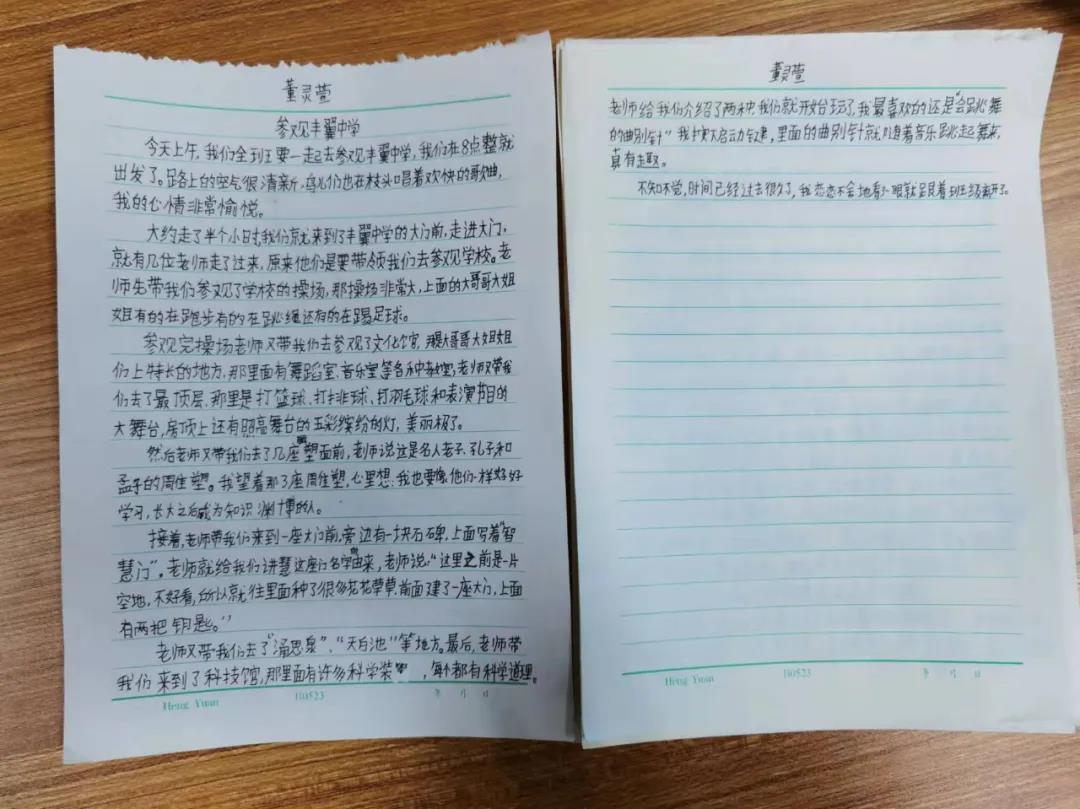 董灵萱
参观丰翼中学
今天上午,我们全班要一起去参观丰翼中学,我们在8点整就
出发了。路上的空气很清新,鸟儿们也在枝头唱着欢快的歌曲,
我的心情非常愉悦。
大约走了半个小时,我们就来到了丰翼中学的大门前,走进大门,
就有几位老师走了过来,原来他们是要带领我们去参观学校。老
师先带我们参观了学校的操场,那操场非常大,上面的大哥哥大姐
姐有的在跑步有的在跳绳还有的在踢足球。
参观完操场老师又带我们去参观了文化馆,那是大哥哥大姐姐
们上特长的地方,那里面有舞蹈室、音乐室等各种教室,老师又带我
们去了最顶层,那里是打篮球、打排球、打羽毛球和表演节目的
大舞台,房顶上还有照亮舞台的五彩缤纷的灯,美丽极了。
然后老师又带我们去了几座雕塑面前,老师说这是名人老子、孔子和
孟子的周隹塑。我望着那3座周隹塑,心里想:我也要像他们一样好好
学习,长大之后成为知识渊博的人。
接着,老师带我们来到一座大门前,旁边有一块石碑,上面写着“智
慧门”,老师就给我们讲慧这座门名字的由来,老师说:“这里之前是一片
空地,不好看,所以就往里面种了很多花花草草,前面建了一座大门,上面
有两把钥匙。”
老师又带我们去了“涌思泉”、“天白池”等地方。最后,老师带
我们来到了科技馆,那里面有许多科学装 ,每个都有科学道理。
Heng Yuan 110523 年 月 日
董灵萱
老师给我们介绍了两种,我们就开始玩了,我最喜欢的还是“会跳舞
的曲别针”我按下启动键,里面的曲别针就随着音乐跳起舞来,
真有趣。
不知不觉,时间已经过去很久了,我恋恋不舍地看一眼就跟着班级离开了。
Heng Yuan 110523 年 月 日